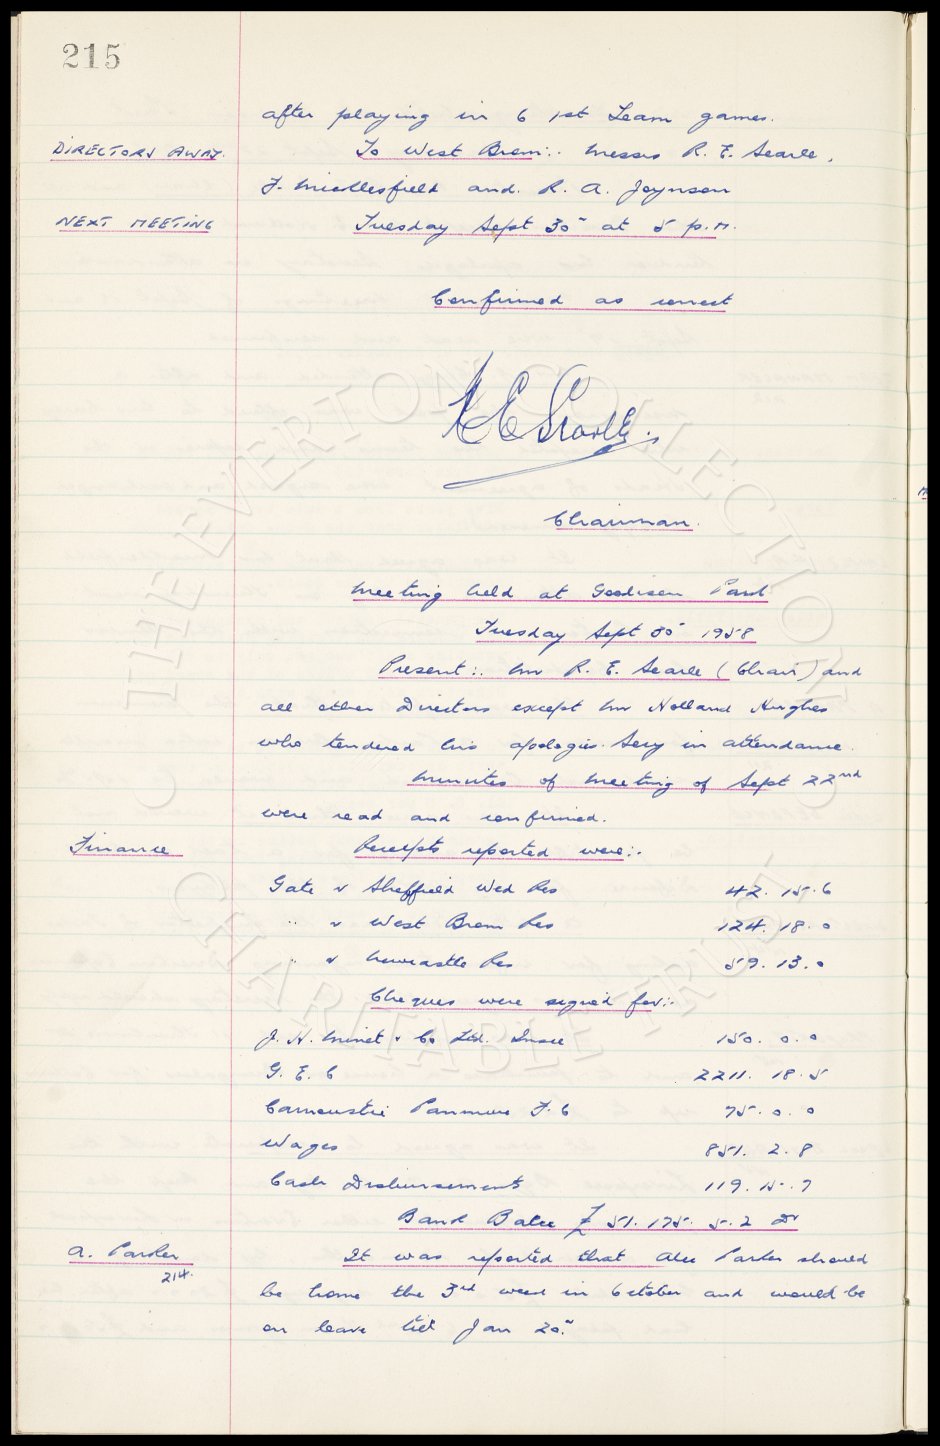 215
after playing in 6 1st Team games.
DIRECTORS AWAY. To West Brom:. Messrs R. E. Searle,
F. Micklesfield and. R. A. Joynson
NEXT MEETING Tuesday Sept 30" at 5 p.m.
Confirmed as correct
R E Searle.
Chairman.
Meeting held at Goodison Park
Tuesday Sept 30" 1958
Present:. Mr R. E. Searle (Chair) and
all other Directors except Mr Holland Hughes
who tendered his apologies. Secy in attendance.
Minutes of meeting of Sept 22nd
were read and confirmed.
Finance Receipts reported were:.
Gate v Sheffield Wed Res 42. 15. 6
" v West Brom Res 124. 18. 0
" v Newcastle Res 59. 13. 0
Cheques were signed for:.
J. H. Minet & Co Ltd. Insce 150. 0. 0
G. E. C 2211. 18. 5
Carnoustie Panmure F. C 75. 0. 0
Wages 851. 2. 8
Cash Disbursements 119. 15. 7
Bank Balce £51. 175. 5. 2 Dr
A. Parker 214. It was reported that Alec Parker should
be home the 3rd week in October and would be
on leave till Jan 20."
© THE EVERTON COLLECTION
CHARITABLE TRUST